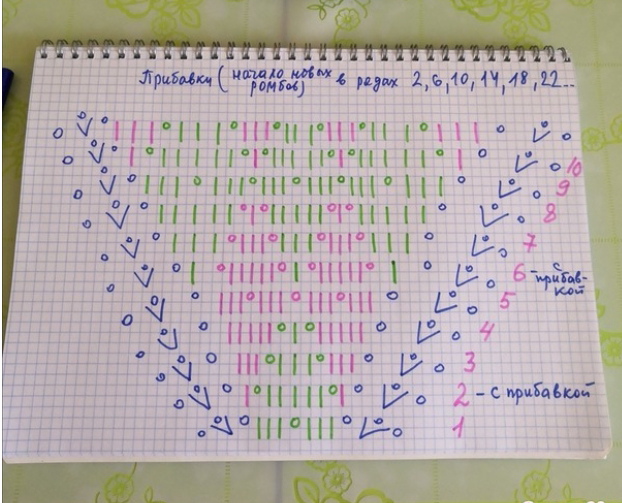 Прибавки (начало новых ромбов) в рядах 2, 6, 10, 14, 18, 22...
10
9
8
7
6 - с прибавкой
5
4
3
2 - с прибавкой
1